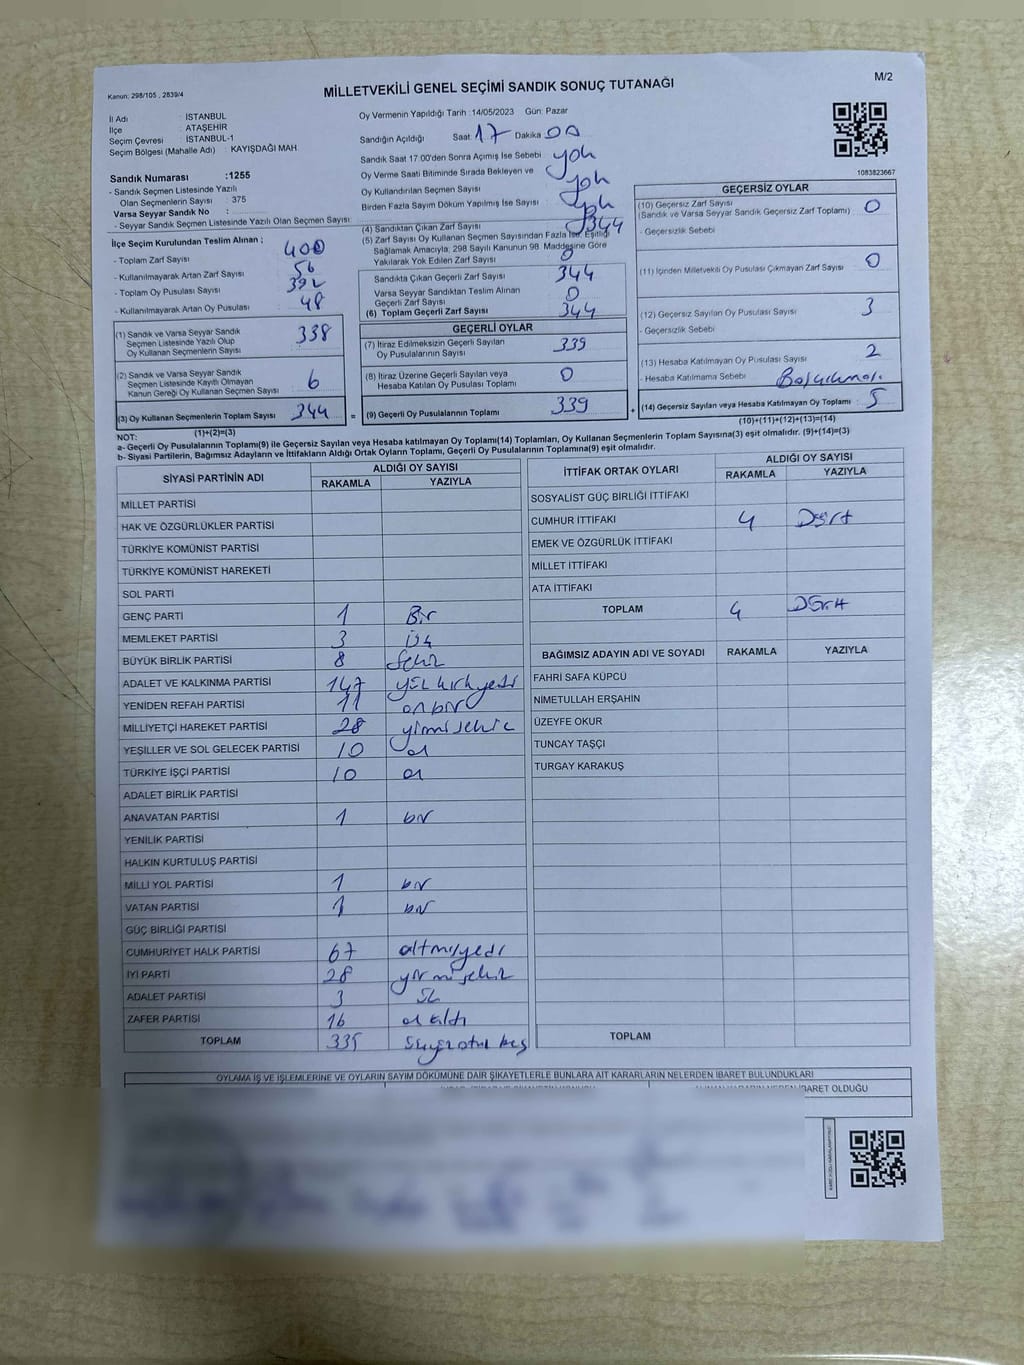 Kanun: 298/105 , 2839/4
MİLLETVEKİLİ GENEL SEÇİMİ SANDIK SONUÇ TUTANAĞI
M/2
İl Adı : İSTANBUL
İlçe : ATAŞEHİR
Seçim Çevresi : İSTANBUL-1
Seçim Bölgesi (Mahalle Adı) : KAYIŞDAĞI MAH.
Sandık Numarası :1255
- Sandık Seçmen Listesinde Yazılı
Olan Seçmenlerin Sayısı : 375
Varsa Seyyar Sandık No :
- Seyyar Sandık Seçmen Listesinde Yazılı Olan Seçmen Sayısı :
İlçe Seçim Kurulundan Teslim Alınan ;
- Toplam Zarf Sayısı : 400
- Kullanılmayarak Artan Zarf Sayısı : 56
- Toplam Oy Pusulası Sayısı : 392
- Kullanılmayarak Artan Oy Pusulası : 48
(1) Sandık ve Varsa Seyyar Sandık
Seçmen Listesinde Yazılı Olup
Oy Kullanan Seçmenlerin Sayısı : 338
(2) Sandık ve Varsa Seyyar Sandık
Seçmen Listesinde Kayıtlı Olmayan
Kanun Gereği Oy Kullanan Seçmen Sayısı : 6
(3) Oy Kullanan Seçmenlerin Toplam Sayısı : 344
(1)+(2)=(3)
Oy Vermenin Yapıldığı Tarih :14/05/2023 Gün: Pazar
Sandığın Açıldığı Saat: 17 Dakika 00
Sandık Saat 17:00'den Sonra Açılmış İse Sebebi : yok
Oy Verme Saati Bitiminde Sırada Bekleyen ve
Oy Kullandırılan Seçmen Sayısı : yok
Birden Fazla Sayım Döküm Yapılmış İse Sayısı : yok
(4) Sandıktan Çıkan Zarf Sayısı : 344
(5) Zarf Sayısı Oy Kullanan Seçmen Sayısından Fazla İse, Eşitliği
Sağlamak Amacıyla, 298 Sayılı Kanunun 98. Maddesine Göre
Yakılarak Yok Edilen Zarf Sayısı : 0
Sandıkta Çıkan Geçerli Zarf Sayısı : 344
Varsa Seyyar Sandıktan Teslim Alınan
Geçerli Zarf Sayısı : 0
(6) Toplam Geçerli Zarf Sayısı : 344
GEÇERLİ OYLAR
(7) İtiraz Edilmeksizin Geçerli Sayılan
Oy Pusulalarının Sayısı : 339
(8) İtiraz Üzerine Geçerli Sayılan veya
Hesaba Katılan Oy Pusulası Toplamı : 0
= (9) Geçerli Oy Pusulalarının Toplamı : 339
1083823667
GEÇERSİZ OYLAR
(10) Geçersiz Zarf Sayısı : 0
(Sandık ve Varsa Seyyar Sandık Geçersiz Zarf Toplamı)
- Geçersizlik Sebebi :
(11) İçinden Milletvekili Oy Pusulası Çıkmayan Zarf Sayısı : 0
(12) Geçersiz Sayılan Oy Pusulası Sayısı : 3
- Geçersizlik Sebebi :
(13) Hesaba Katılmayan Oy Pusulası Sayısı : 2
- Hesaba Katılmama Sebebi :
+ (14) Geçersiz Sayılan veya Hesaba Katılmayan Oy Toplamı : 5
(10)+(11)+(12)+(13)=(14)
NOT:
a- Geçerli Oy Pusulalarının Toplamı(9) ile Geçersiz Sayılan veya Hesaba katılmayan Oy Toplamı(14) Toplamları, Oy Kullanan Seçmenlerin Toplam Sayısına(3) eşit olmalıdır. (9)+(14)=(3)
b- Siyasi Partilerin, Bağımsız Adayların ve İttifakların Aldığı Ortak Oyların Toplamı, Geçerli Oy Pusulalarının Toplamına(9) eşit olmalıdır.
SİYASİ PARTİNİN ADI ALDIĞI OY SAYISI
RAKAMLA YAZIYLA
MİLLET PARTİSİ
HAK VE ÖZGÜRLÜKLER PARTİSİ
TÜRKİYE KOMÜNİST PARTİSİ
TÜRKİYE KOMÜNİST HAREKETİ
SOL PARTİ
GENÇ PARTİ 1 Bir
MEMLEKET PARTİSİ 3 üç
BÜYÜK BİRLİK PARTİSİ 8 Sekiz
ADALET VE KALKINMA PARTİSİ 147 yüzkırkyedi
YENİDEN REFAH PARTİSİ 11 onbir
MİLLİYETÇİ HAREKET PARTİSİ 28 yirmisekiz
YEŞİLLER VE SOL GELECEK PARTİSİ 10 on
TÜRKİYE İŞÇİ PARTİSİ 10 on
ADALET BİRLİK PARTİSİ
ANAVATAN PARTİSİ 1 bir
YENİLİK PARTİSİ
HALKIN KURTULUŞ PARTİSİ
MİLLİ YOL PARTİSİ 1 bir
VATAN PARTİSİ 1 bir
GÜÇ BİRLİĞİ PARTİSİ
CUMHURİYET HALK PARTİSİ 67 altmışyedi
İYİ PARTİ 28 yirmisekiz
ADALET PARTİSİ 3 üç
ZAFER PARTİSİ 16 on altı
TOPLAM 335 üçyüzotuz beş
İTTİFAK ORTAK OYLARI ALDIĞI OY SAYISI
RAKAMLA YAZIYLA
SOSYALİST GÜÇ BİRLİĞİ İTTİFAKI
CUMHUR İTTİFAKI 4 Dört
EMEK VE ÖZGÜRLÜK İTTİFAKI
MİLLET İTTİFAKI
ATA İTTİFAKI
TOPLAM 4 Dört
BAĞIMSIZ ADAYIN ADI VE SOYADI RAKAMLA YAZIYLA
FAHRİ SAFA KÜPCÜ
NİMETULLAH ERŞAHİN
ÜZEYFE OKUR
TUNCAY TAŞÇI
TURGAY KARAKUŞ
TOPLAM
OYLAMA İŞ VE İŞLEMLERİNE VE OYLARIN SAYIM DÖKÜMÜNE DAİR ŞİKAYETLERLE BUNLARA AİT KARARLARIN NELERDEN İBARET BULUNDUKLARI
İBARET OLDUĞU